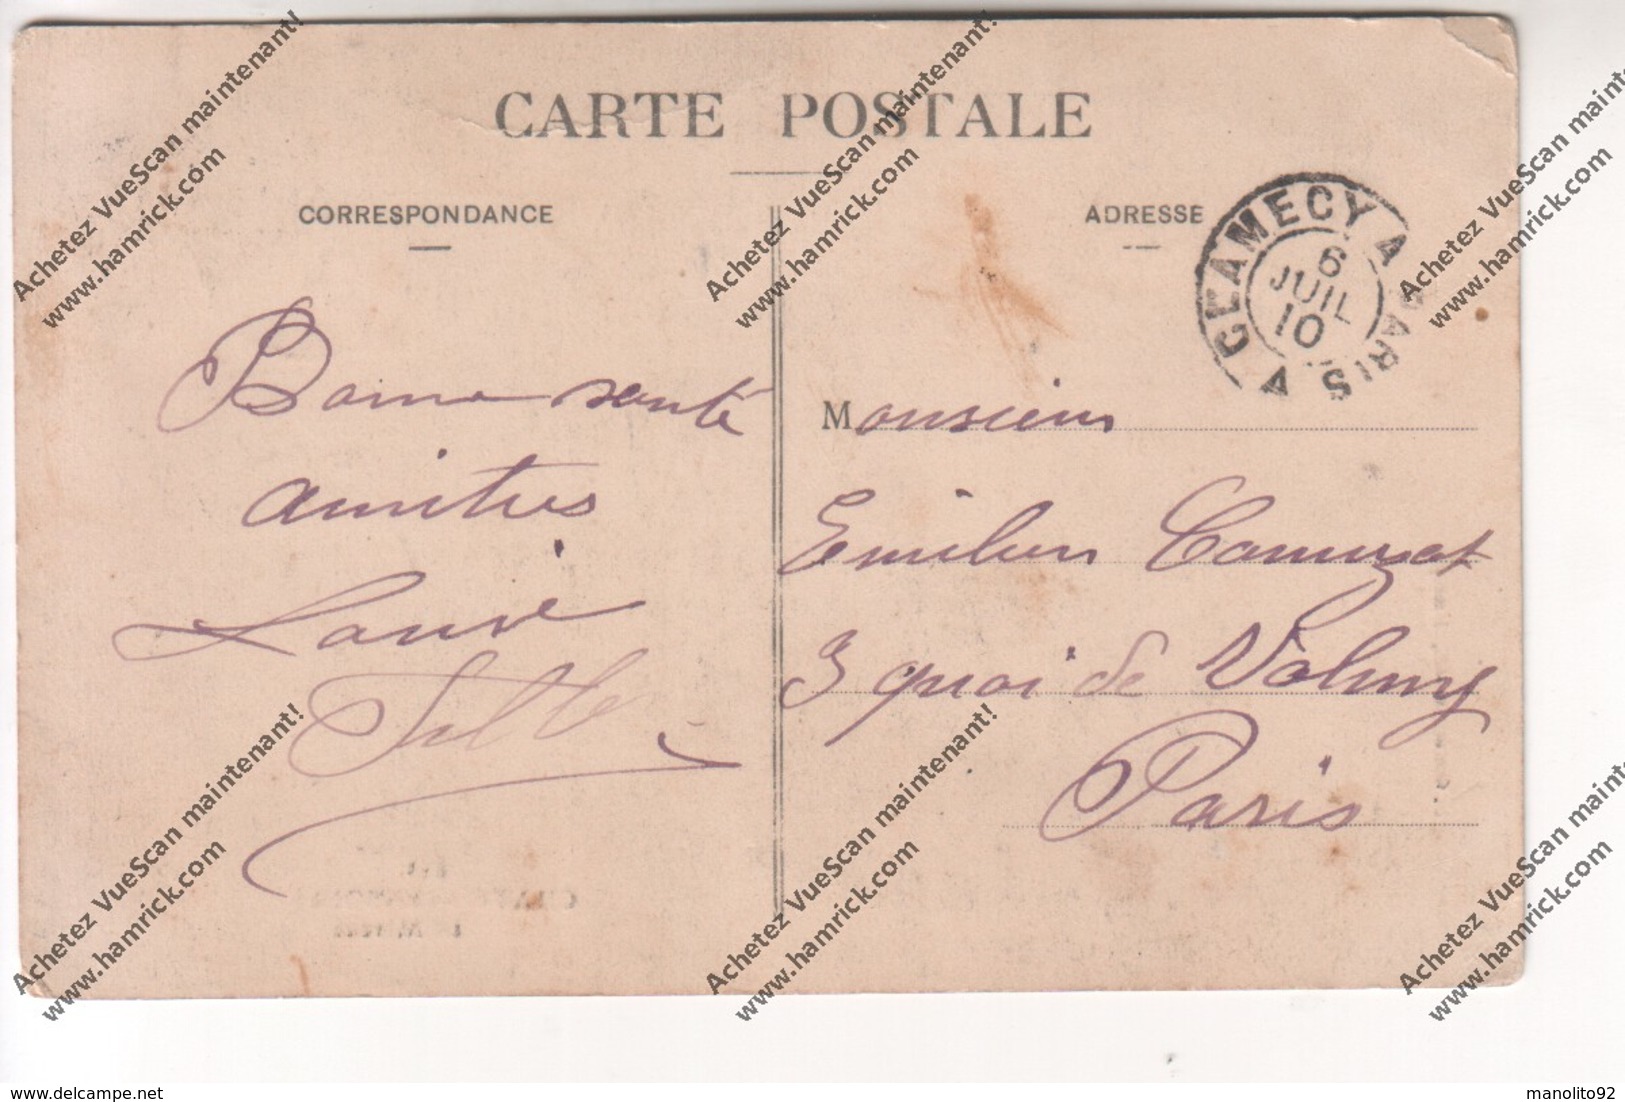 CARTE POSTALE
CORRESPONDANCE
ADRESSE
CLAMECY A PARIS
6
JUIL
10
Bonne santé
amitiés
Louise
Monsieur
Emilien
3 quai de Valmy
Paris
Achetez VueScan maintenant!
www.hamrick.com
Achetez VueScan maintenant!
www.hamrick.com
Achetez VueScan maintenant!
www.hamrick.com
Achetez VueScan maintenant!
www.hamrick.com
Achetez VueScan maintenant!
www.hamrick.com
Achetez VueScan maintenant!
www.hamrick.com
www.delcampe.net
manolito92